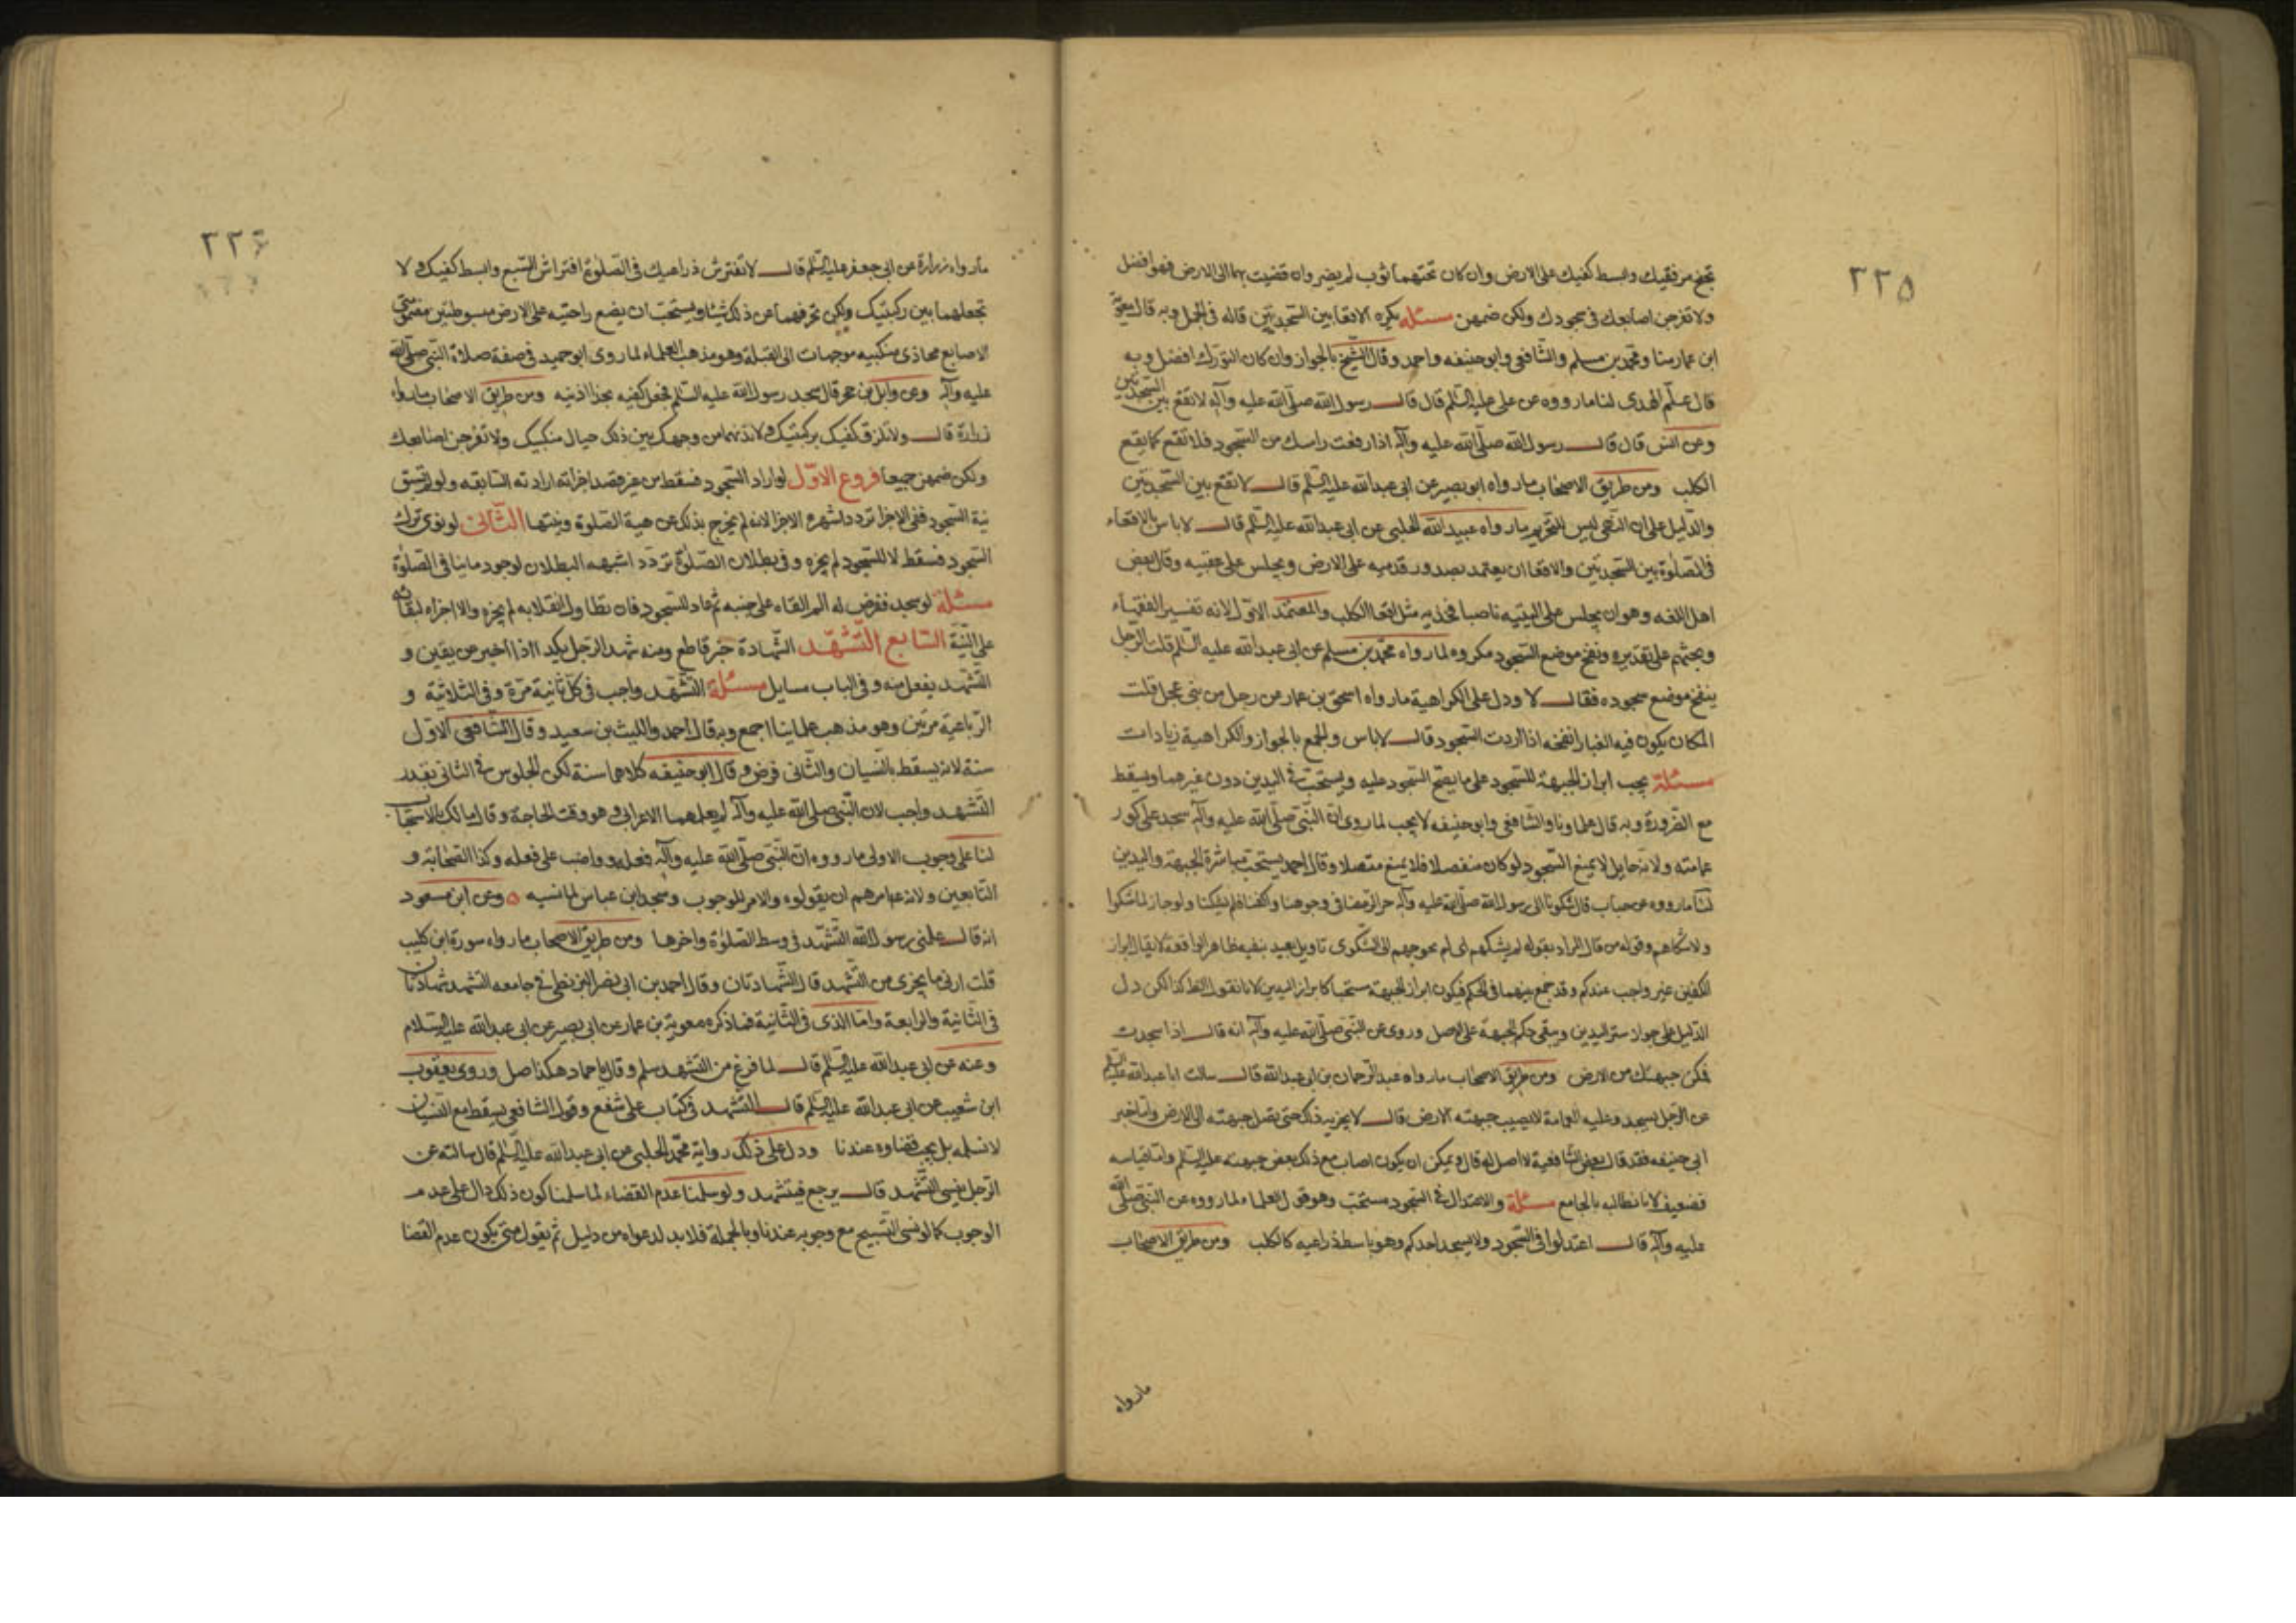 ٢٢٥
تجنح مرفقيك وابسط كفيك على الارض وان كان تحتهما ثوب لم يضر وان قضيت بهما الى الارض فهو افضل
ولا تفرجن اصابعك فى سجودك ولكن ضمهن مسئله يكره الاقعا بين السجدتين قاله فى الجمل وبه قال معوية
ابن عمار منا ومحمد بن مسلم والشافعى وابو حنيفه واحمد وقال الشيخ بالجواز وان كان التورك افضل وبه
قال علم الهدى لنا ما رووه عن على عليه السلم قال قال رسول الله صلى الله عليه وآله لا تقع بين السجدتين
وعن انس قال قال رسول الله صلى الله عليه وآله اذا رفعت راسك من السجود فلا تقع كما يقع
الكلب ومن طريق الاصحاب ما رواه ابو بصير عن ابى عبدالله عليه السلم قال لا تقع بين السجدتين
والدليل على ان النهى ليس للتحريم ما رواه عبيد الله الحلبى عن ابى عبدالله عليه السلم قال لا باس بالاقعاء
فى الصلوة بين السجدتين والاقعا ان يعتمد بصدور قدميه على الارض ويجلس على عقبيه وقال بعض
اهل اللغه وهو ان يجلس على اليتيه ناصبا فخذيه مثل اقعا الكلب والمعتمد الاول لانه تفسير الفقهاء
وبحثهم على تقديره ونفخ موضع السجود مكروه لما رواه محمد بن مسلم عن ابى عبدالله عليه السلم قلت الرجل
ينفخ موضع سجوده فقال لا ودل على الكراهية ما رواه اسحق بن عمار عن رجل من بنى عجل قلت
المكان يكون فيه الغبار انفخه اذا اردت السجود قال لا باس والجمع بالجواز والكراهية زيادات
مسئلة يجب ابراز الجبهة للسجود على ما يصح السجود عليه ويستحب فى اليدين دون غيرهما ويسقط
مع الضرورة وبه قال علماونا والشافعى وابو حنيفه لا يجب لما روى ان النبى صلى الله عليه وآله سجد على كور
عمامته ولانه حايل لا يمنع السجود لو كان منفصلا فلا يمنع متصلا وقال احمد يستحب مباشرة الجبهة واليدين
لنا ما رووه عن خباب قال شكونا الى رسول الله صلى الله عليه وآله حر الرمضا فى وجوهنا واكفنا فلم يشكنا ولو جاز لما شكوا
ولا شكاهم وقوله من قال المراد بقوله لم يشكهم اى لم يحوجهم الى الشكوى تاويل بعيد ينفيه ظاهر الواقعة لا يقال ابراز
الكفين غير واجب عندكم وقد جمع بينهما فى الحكم فيكون ابراز الجبهة مستحبا كابراز اليدين لانا نقول الظاهر كذا لكن دل
الدليل على جواز ستر اليدين وبقى حكم الجبهة على الاصل وروى عن النبى صلى الله عليه وآله انه قال اذا سجدت
فمكن جبهتك من الارض ومن طريق الاصحاب ما رواه عبد الرحمان بن ابى عبدالله قال سالت ابا عبدالله عليه السلم
عن الرجل يسجد وعليه العمامة لا يصيب جبهته الارض قال لا يجزيه ذلك حتى تصل جبهته الى الارض واما خبر
ابى حنيفه فقد قال بعض الشافعية لا اصل له قال ويمكن ان يكون اصاب مع ذلك بعض جبهته عليه السلم واما قياسه
فضعيف لانا نطالبه بالجامع مسئلة والاعتدال فى السجود مستحب وهو قول العلماء لما رووه عن النبى صلى الله
عليه وآله قال اعتدلوا فى السجود ولا يسجد احدكم وهو باسط ذراعيه كالكلب ومن طريق الاصحاب
ما رواه
٢٢۶
ما رواه زرارة عن ابى جعفر عليه السلم قال لا تفترش ذراعيك فى الصلوة افتراش السبع وابسط كفيك ولا
تجعلهما بين ركبتيك ولكن تحرفهما عن ذلك شيئا ويستحب ان يضع راحتيه على الارض مبسوطتين مضمومتى
الاصابع محاذى منكبيه موجهات الى القبلة وهو مذهب العلماء لما روى ابو حميد فى صفة صلاة النبى صلى الله
عليه وآله وعن وايل بن حجر قال سجد رسول الله عليه السلم فجعل كفيه بحذا اذنيه ومن طريق الاصحاب ما رواه
زرارة قال ولا تلزق كفيك بركبتيك ولا تدنهما من وجهك بين ذلك حيال منكبيك ولا تفرجن اصابعك
ولكن ضمهن جميعا فروع الاول لو اراد السجود فسقط من غير قصد اجزاته ارادته السابقه ولو لم تسبق
نية السجود ففى الاجزا تردد اشهره الاجزا لانه لم يخرج بذلك عن هيئة الصلوة ونيتها الثانى لو نوى ترك
السجود فسقط لا للسجود لم يجزه وفى بطلان الصلوة تردد اشبهه البطلان لوجود ما ينافى الصلوة
مسئلة لو سجد فعرض له الم القاه على جنبه ثم عاد للسجود فان تطاول انقلابه لم يجزه والا اجزاه لبقائه
على النية السابع التشهد الشهادة خبر قاطع ومنه شهد الرجل بكيذا اذا اخبر عن يقين و
التشهد يفعل منه وفى الباب مسايل مسئلة التشهد واجب فى كل ثانية مرة وفى الثلاثية و
الرباعية مرتين وهو مذهب علماينا اجمع وبه قال احمد والليث بن سعيد وقال الشافعى الاول
سنة لانه يسقط بالنسيان والثانى فرض وقال ابو حنيفه كلاهما سنة لكن الجلوس فى الثانى بقدر
التشهد واجب لان النبى صلى الله عليه وآله لم يعلمهما الاعرابى وهو وقت الحاجة وقال مالك بالاستحباب
لنا على وجوب الاولى ما رووه ان النبى صلى الله عليه وآله فعله وواضب على فعله وكذا الصحابة و
التابعين ولانه عم امرهم ان يقولوه والامر للوجوب وسجد ابن عباس لما نسيه ۝ وعن ابن مسعود
انه قال علمنى رسول الله التشهد فى وسط الصلوة واخرها ومن طريق الاصحاب ما رواه سورة ابن كليب
قلت ادنى ما يجزى من التشهد قال الشهادتان وقال احمد بن ابى نصر البزنطى فى جامعه التشهد شهادتان
فى الثانية والرابعة واما الذى فى الثانية فما ذكره معوية بن عمار عن ابى بصير عن ابى عبدالله عليه السلام
وعنه عن ابى عبدالله عليه السلم قال لما فرغ من التشهد سلم وقال يا حماد هكذا صل وروى يعقوب
ابن شعيب عن ابى عبدالله عليه السلم قال التشهد فى كتاب على شفع وقول الشافعى يسقط مع النسيان
لا نسلمه بل يجب قضاوه عندنا ودل على ذلك رواية محمد الحلبى عن ابى عبدالله عليه السلم قال سالته عن
الرجل ينسى التشهد قال يرجع فيتشهد ولو سلمنا عدم القضاء لما سلمنا كون ذلك دال على عدم
الوجوب كما لو نسى التسبيح مع وجوبه عندنا وبالجملة فلا بد لدعواه من دليل ثم يقول متى يكون عدم القضا